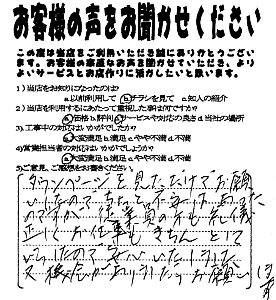 お客様の声をお聞かせください
この度は当店をご利用いただき誠にありがとうござい
ます。お客様の率直なお声を聞かせていただき、より
よいサービスとお店作りに活かしたいと思います。
1)当店をお知りになったのは?
a.以前利用して bチラシを見て c.知人の紹介
2)当店を利用するにあたって重視した事は何ですか?
a価格 b.評判 cサービスや対応の良さ d.当社の場所
3)工事中の対応はいかがでしたか?
a大変満足 b.満足 c.やや不満 d.不満
4)営業担当者の対応はいかがでしょうか?
a大変満足 b.満足 c.やや不満 d.不満
5)ご意見、ご感想をお書きください。
タウンページを見ただけでお願
いしたのでちょっと不安はあった
のですが、従業員の方も礼儀
正しくお仕事もきちんとして
いらしたので安心いたしました
又機会がありましたらお願い